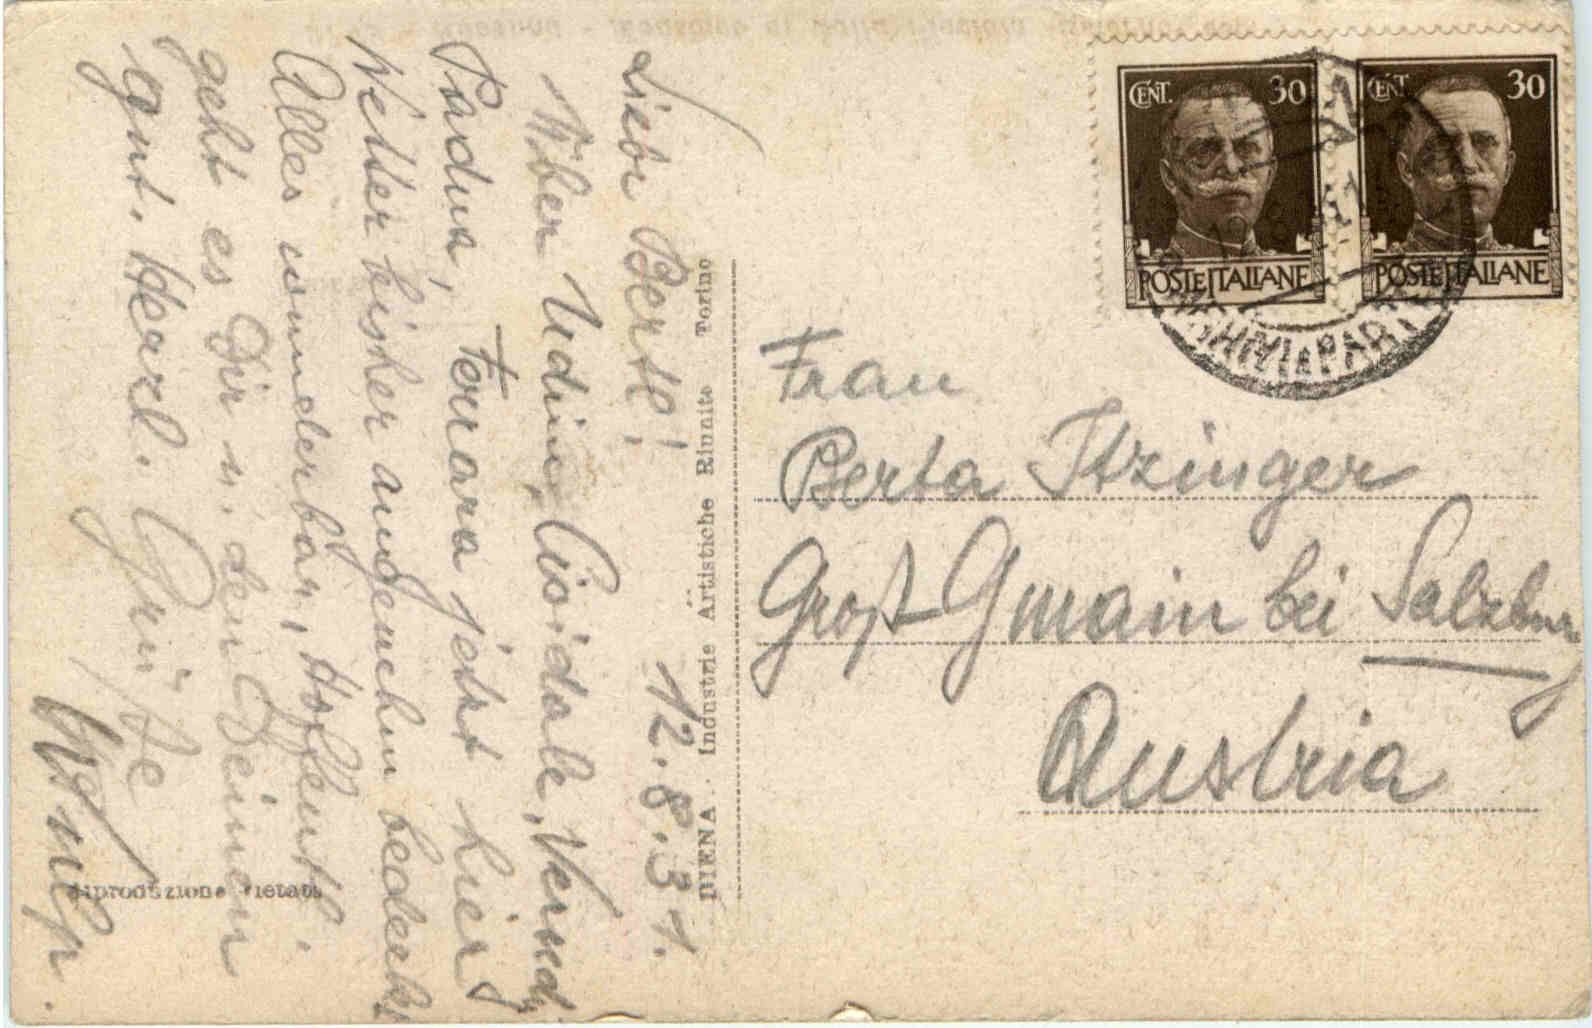 Liebe Bertl!
12.8.31.
Über Udine, Cividale, Vened.
Padua, Ferrara jetzt hier
Wetter bisher angenehm bedeckt
Alles wunderbar, Hoffentl.
geht es Dir u. den Deinen
gut. Herzl. Grüße
Reproduzione vietata
DIENA - Industrie Artistiche Riunite Torino
CENT. 30
POSTE ITALIANE
CENT. 30
POSTE ITALIANE
Frau
Berta Itzinger
Groß Gmain bei Salzburg
Austria